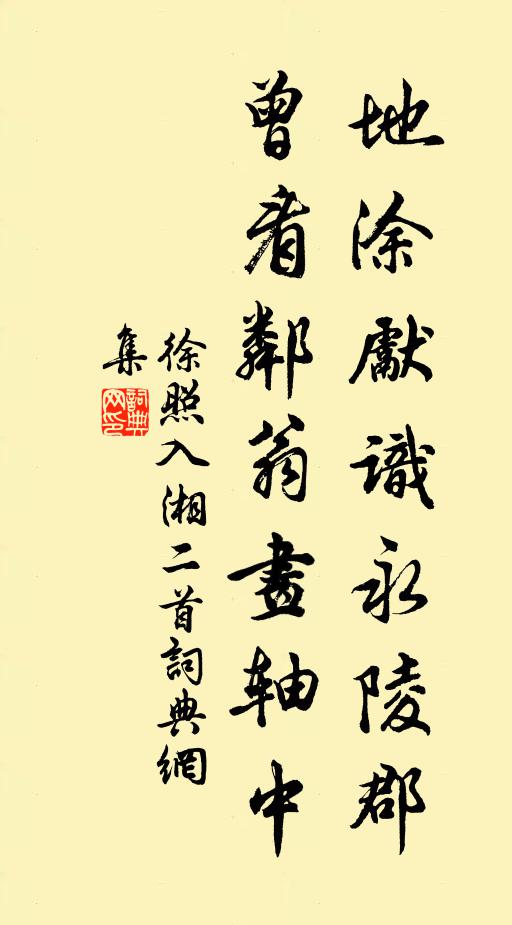 地涂獻識永陵郡
曾看鄰翁畫轴中
徐照入湘二首詞典網
集
詞典網印